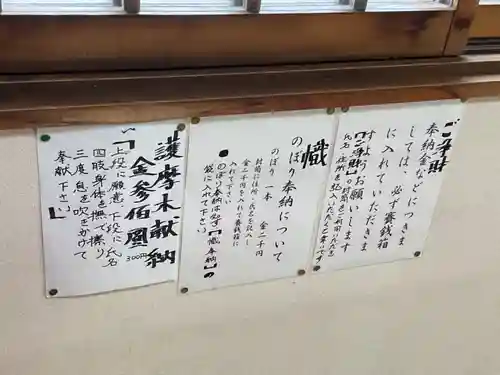 ご浄財
奉納金などにつきま
しては、必ず賽銭箱
に入れていただきま
すようお願いします
幟
のぼり奉納について
のぼり一本 金二千円
封筒に住所・氏名を記入し
金二千円を入れ賽銭箱に
入れて下さい
●のぼり奉納は必ず「幟奉納」の
袋に入れて下さい
護摩木献納
金参佰圓
300円
「上段に願意、下段に氏名
四肢身体を撫で擦り
三度息を吹きかけて
奉献下さい」